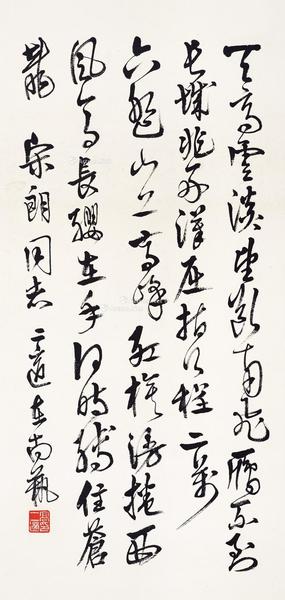 天高雲淡望斷南飛雁不到
長城非好漢屈指行程二萬
六盤山上高峰紅旗漫捲西
風今日長纓在手何時縛住蒼
龍 宋朗同志 二適在南藝